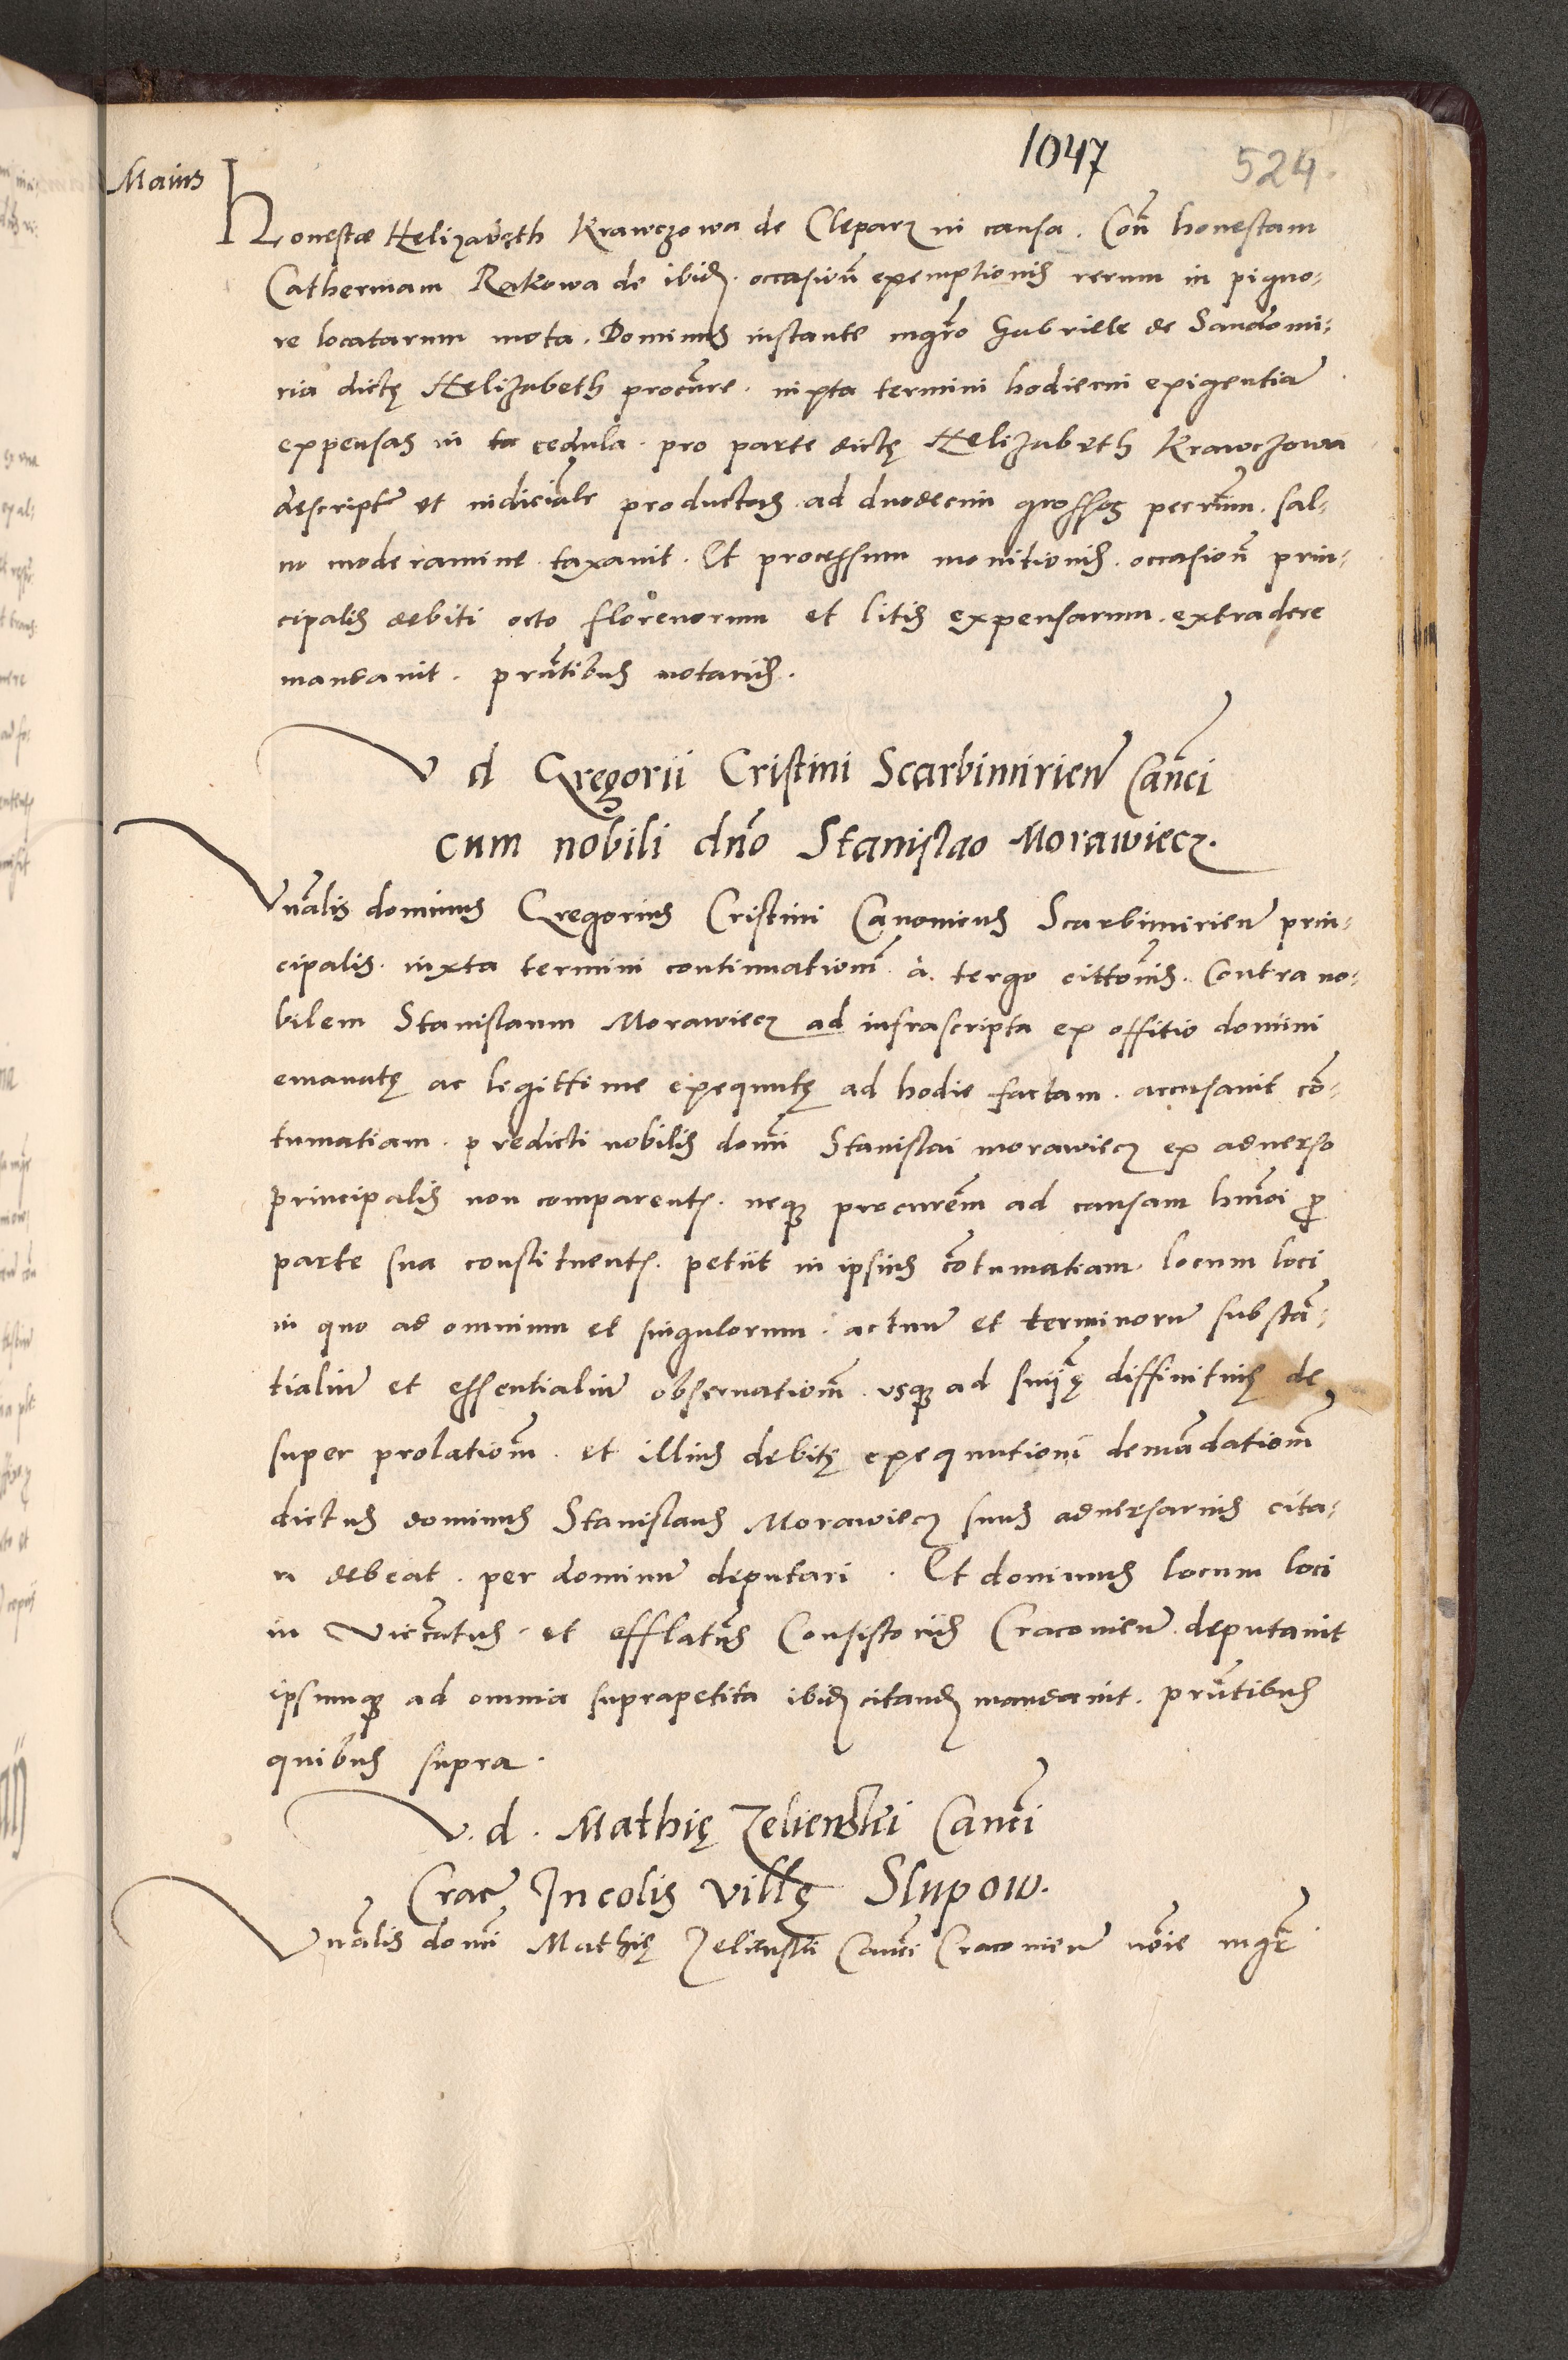 1047
524.
Maius
Honestæ Helizabeth Krawczowa de Cleparz in causa. Con͂ honestam
Catherinam Rakowa de ibid. occasion͂ exemptionis rerum in pigno-
re locatarum mota. Dominus instante mgr͂o Gabriele de Sandomi-
ria dictę Helizabeth procur͂e. iuxta termini hodierni exigentia͂
expensas in cedula pro parte dictę Helizabeth Krawczowa
descript͂ et iudicial͂r productas ad duodecim grossos pec͂rum. sal-
uo moderamine taxauit. Et processum monitionis. occasion͂ prin-
cipalis debiti octo florenorum et litis expensarum. extradere
mandauit. prn͂tibus notariis.
V d Gregorii Cristini Scarbimirien͂ Can͂ci
cum nobili dn͂o Stanislao Morawiecz.
Vn͂alis dominus Gregorius Cristini Canonicus Scarbimirien͂ prin-
cipalis. iuxta termini continuation͂ à tergo citton͂is. Contra no-
bilem Stanislaum Morawiecz ad infrascripta ex offitio domini
emanatę ac legittime exequutę ad hodie factam. accusauit co͂-
tumatiam. predicti nobilis dom͂i Stanislai morawiecz ex aduerso
principalis non comparent. neq procurem͂ ad causam hm͂oi p
parte sua constituent. petiit in ipsius co͂tumatiam. locum loci
in quo ad omnium et singulorum. actuum͂ et terminoru͂ substa͂-
tialiu͂ et essentialiu͂ obseruation͂. vsq ad sn͂ię diffinitiuę de
super prolation͂. et illius debitę exequution͂ dema͂dation͂
dictus dominus Stanislaus Morawiecz suus aduersarius cita-
ri debeat. per dominu͂ deputari. Et dominus locum loci
in et Consistoriis Cracouien͂ deputauit
ipsumq ad omnia suprapetita ibid citand mandauit. prn͂tibus
quibus supra.
V. d. Mathię Zelienski Can͂ci
Crac͂ Incolis villę Slupow.
Vn͂alis dom͂i Mathię Zelienski Can͂ci Cracouien͂ no͂ie mgr͂